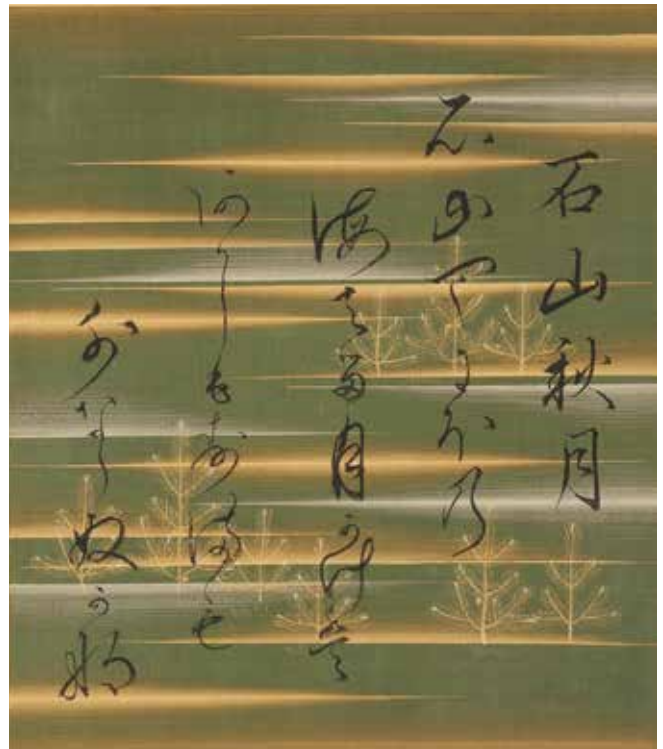 石山秋月
石山やにほの
海てる月かけは
あかしもすまも
外ならぬかな